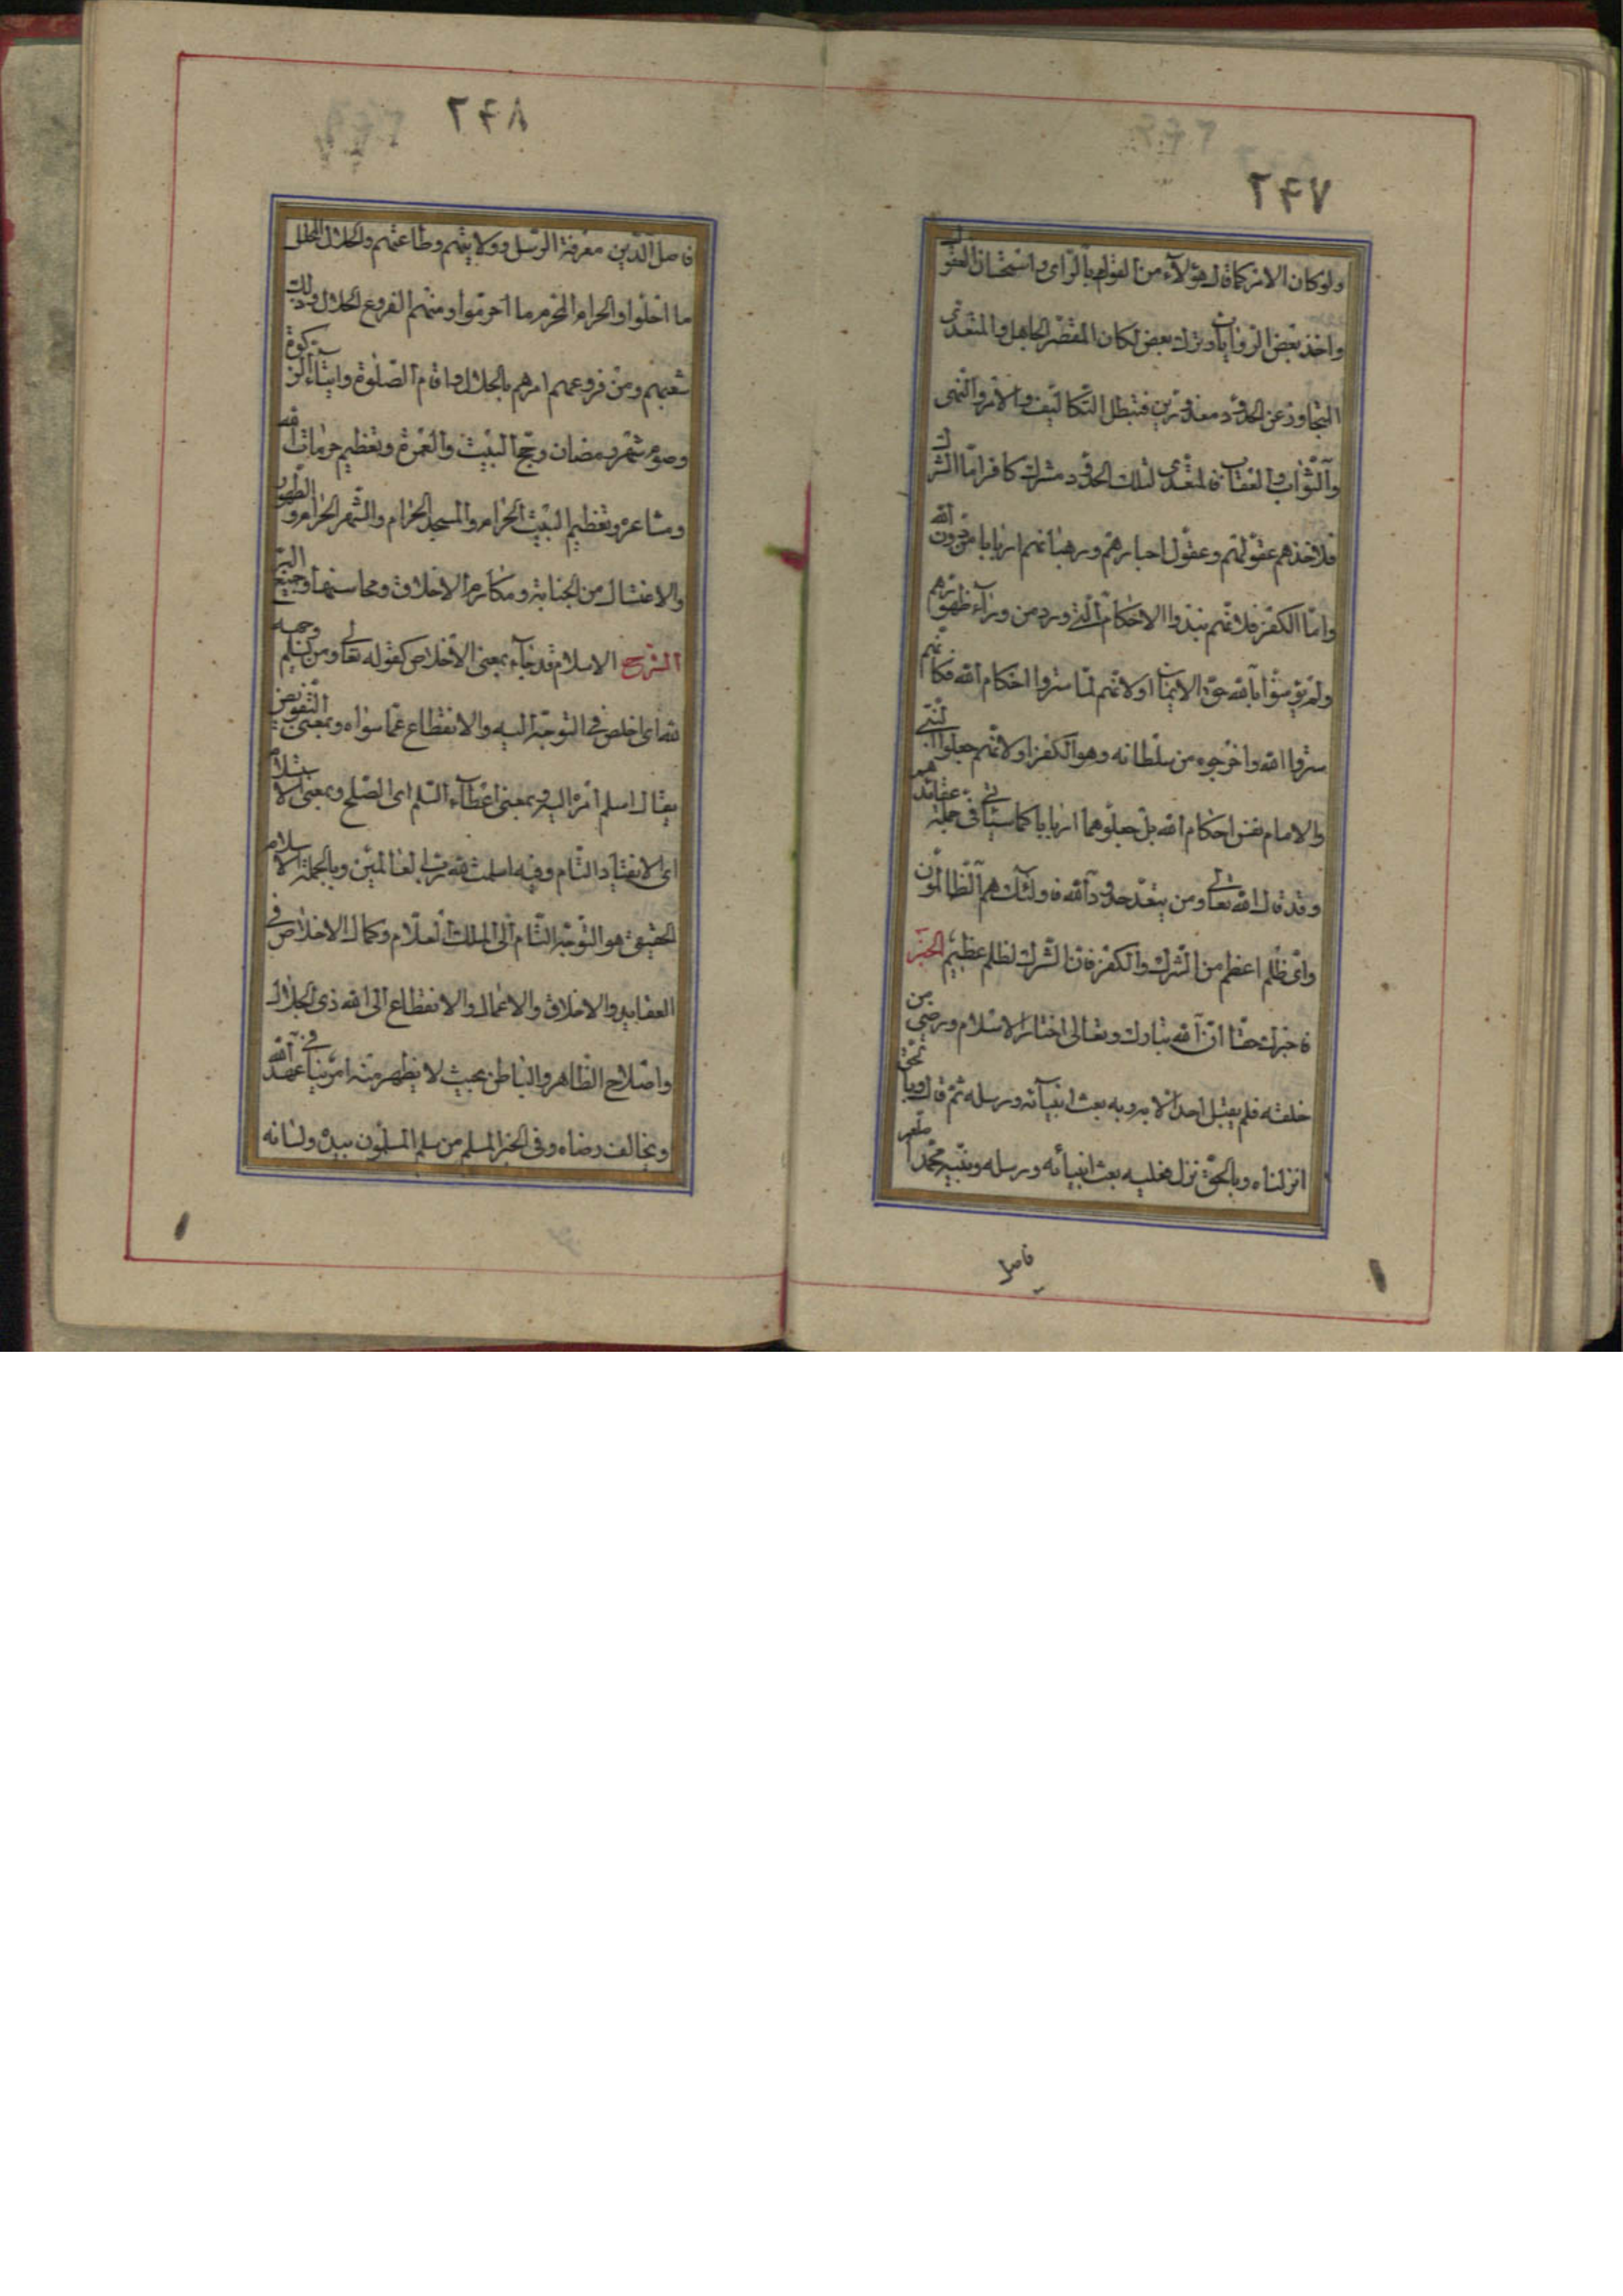 ۲۴۷
ولو كان الامر كما قال هؤلاء من القول بالرای واستحسان العقول
واخذ بعض الروايات وترك بعض لكان المقصّر الجاهل والمتعدّی
المتجاوز عن الحدود معذورين فتبطل التكاليف والامر والنهی
والثواب والعقاب فالمتعدی لتلك الحدود مشرك كافر امّا الشرك
فلاخذهم عقولهم وعقول احبارهم ورهبانهم اربابا من دون الله
وامّا الكفر فلانهم نبذوا الاحكام الّتی ورد من وراء ظهورهم
ولم يؤمنوا بالله حقّ الايمان اولانهم لمّا ستروا احكام الله فكانهم
ستروا الله واخرجوه من سلطانه وهو الكفر اولانهم جعلوا النبّی
والامام نفس احكام الله بل جعلوهما اربابا كما سيأتی فی جملة عقائدهم
وقد قال الله تعالی ومن يتعدّ حدود الله فاولئك هم الظالمون
وایّ ظلم اعظم من الشرك والكفر فانّ الشرك لظلم عظيم الخبر
فاخبرك حقّا انّ الله تبارك وتعالى اختار الاسلام ورضی من
خلقه فلم يقبل احدا الا به وبه بعث انبيائه ورسله ثمّ قال وبالحقّ
انزلناه وبالحقّ نزل فعليه بعث انبيائه ورسله ونبيّه محمّدا صلعم
فاصل
۲۴۸
فاصل الدّين معرفة الرسل وولايتهم وطاعتهم والحلال المحلّل
ما احلّوا والحرام المحرم ما احرّموا ومنهم الفروع الحلال وذلك
شعبهم ومن فروعهم امرهم بالحلال واقام الصّلوة وايتاء الزكوة
وصوم شهر رمضان وحجّ البيت والعمرة وتعظيم حرمات الله
ومشاعره وتعظيم البيت الحرام والمسجد الحرام والشّهر الحرام والطّهور
والاغتسال من الجنابة ومكارم الاخلاق ومحاسنها وجميع البرّ
الشرح الاسلام قد جاء بمعنی الاخلاص كقوله تعالی ومن يسلم وجهه
لله ای اخلص فی التوجّه اليه والانقطاع عمّا سواه وبمعنی التفويض
يقال اسلم امره اليه وبمعنی اعطاء السّلم ای الصّلح وبمعنی الاستسلام
ای الانقياد التّام وفيه اسلمت لله ربّ العالمين وبالجملة الاسلام
الحقيقی هو التوجّه التّام الی الملك العلّام وكمال الاخلاص فی
العقايد والاخلاق والاعمال والانقطاع الى الله ذی الجلال
واصلاح الظاهر والباطن بحيث لا يظهر منه امر ينافی عهد الله
ويخالف رضاه وفی الخبر المسلم من سلم المسلمون بيده ولسانه